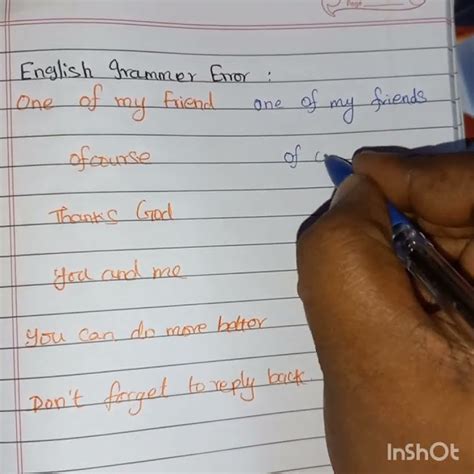 Page
English Grammer Error :
One of my Friend one of my friends
ofcourse of c
Thanks God
You and me
You can do more better
Don't forget to reply back.
InShOt